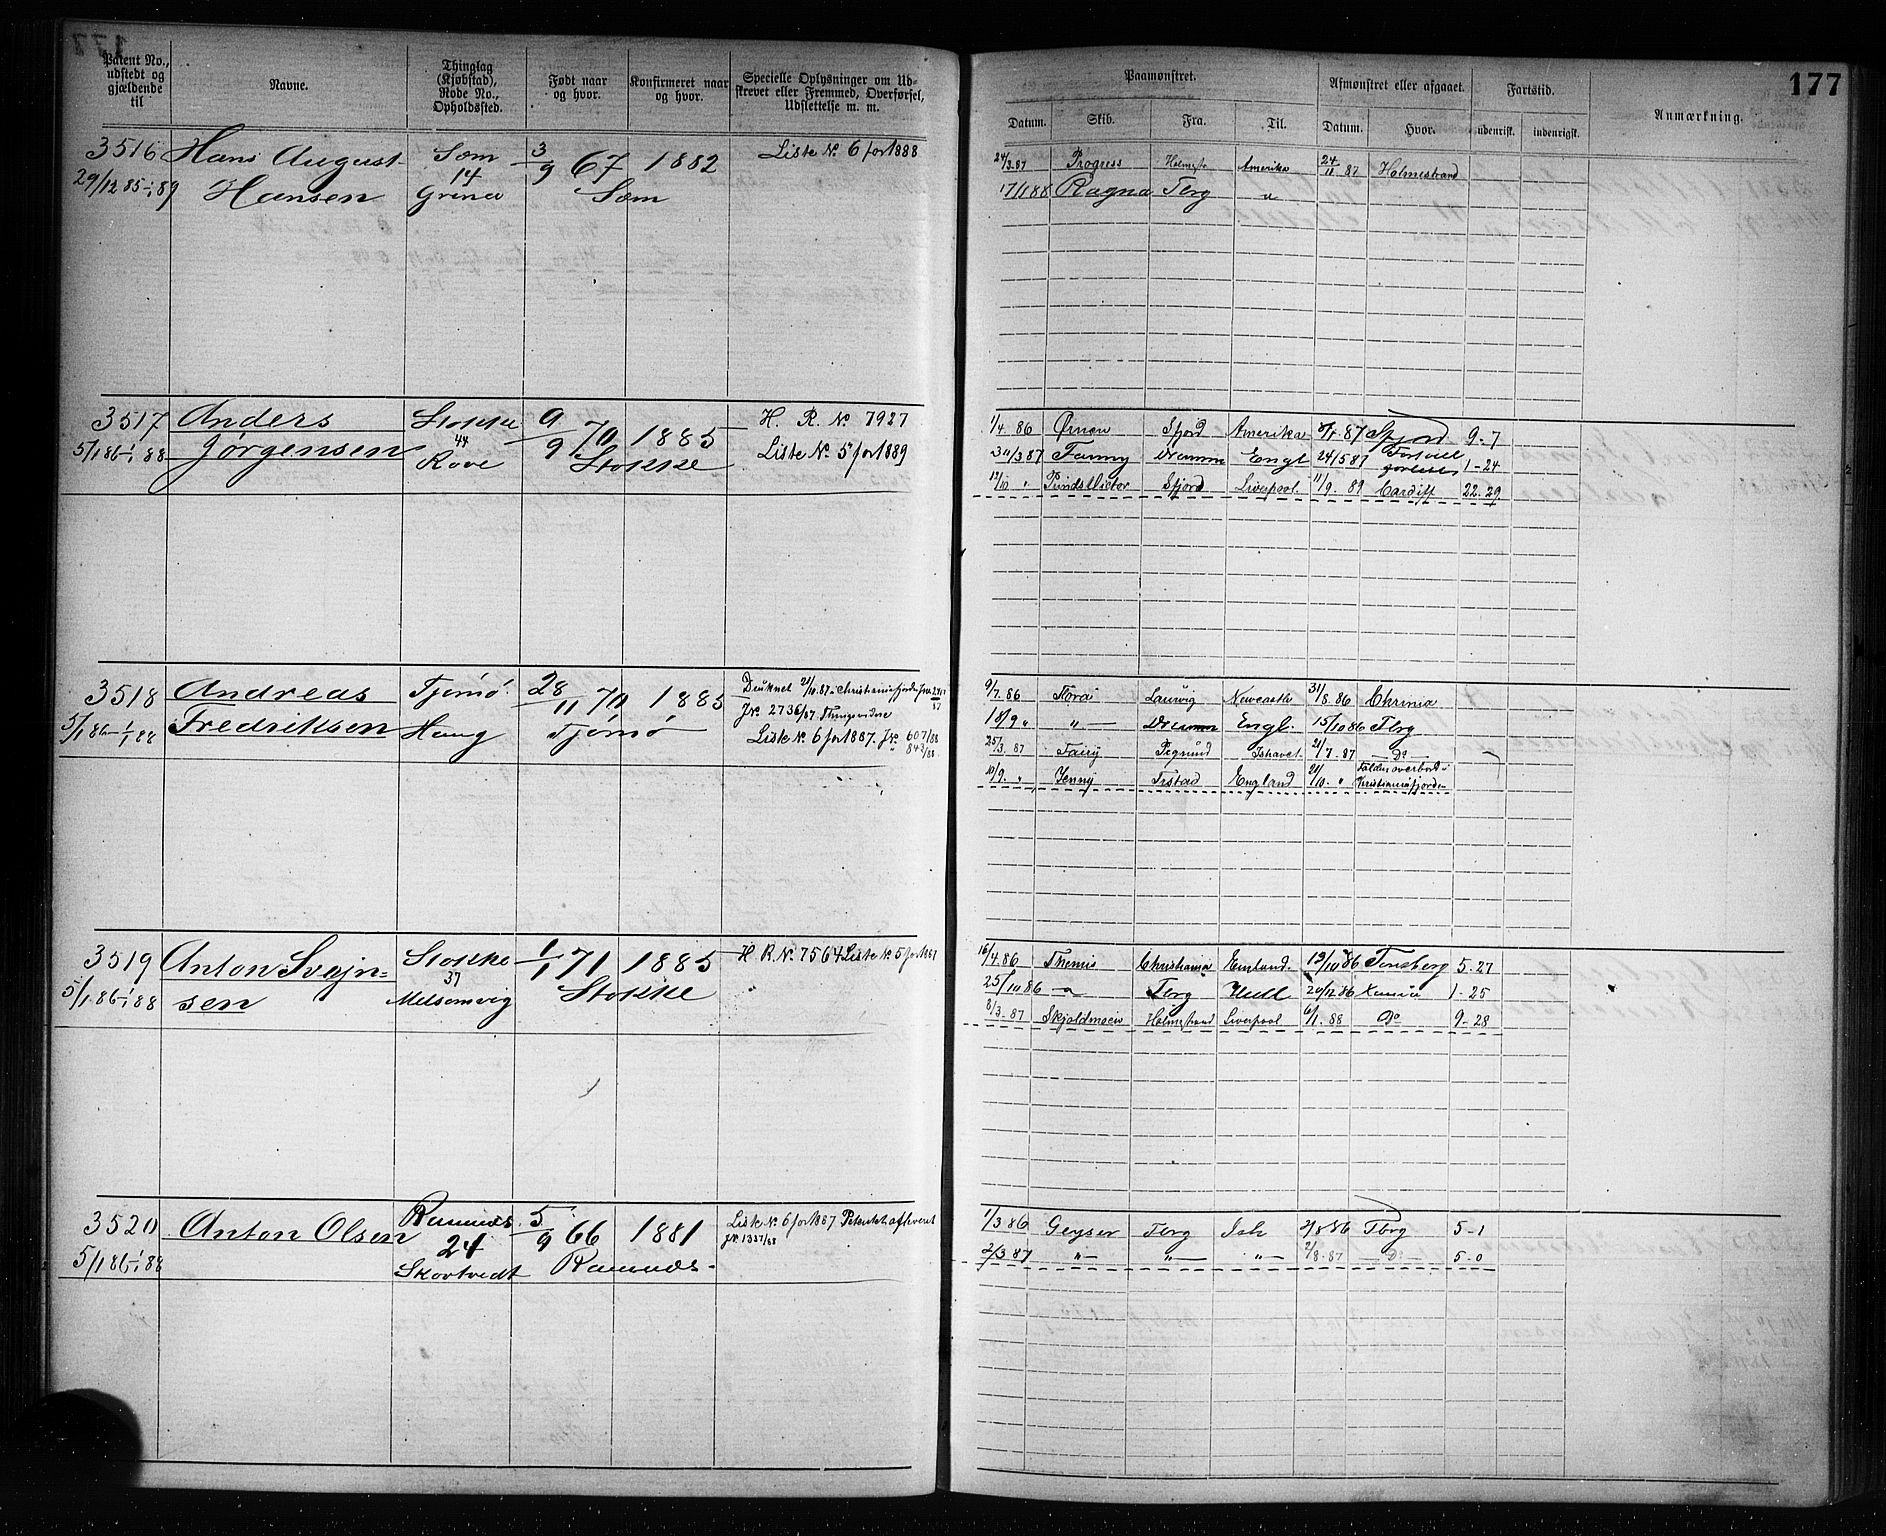 177
Patent No., udstedt og gjældende til
Navne.
Thinglag (Kjøbstad), Rode No., Opholdssted.
Født naar og hvor.
Konfirmeret naar og hvor.
Specielle Oplysninger om Udskrevet eller Fremmed, Overførsel, Udslettelse m. m.
Paamønstret.
Afmønstret eller afgaaet.
Fartstid.
Anmærkning.
Datum.
Skib.
Fra.
Til.
Datum.
Hvor.
udenrisk.
indenrigsk.
3516 Hans August Sæm 3/9 67 1882 Liste No. 6 for 1888
29/12 85-1/1 89 Hansen 14 Grinei Sæm
24/3.87 Progress Holmestr Amerika 24/11 87 Holmestrand
17/1 88 Ragna Tbrg
3517 Anders Stokke 9/9 70 1885 H. R. No 7927
5/1 86-1/1 88 Jørgensen 44 Rove Stokke Liste No. 5 for 1889
1/4.86 Ørnen Sfjord Amerika 87 Sfjord 9-7
87 Fanny Dramm Engl 24/5 87 1-24
12/10 " Sfjord Liverpool. 11/9.89 Cardiff 22.29
3518 Andreas Tjømø. 28/11 70 1885 Druknet 21/10.87 i Christianiafjorden
5/1 86-1/1 88 Fredriksen Haug Tjømø JNo 2736/87
Liste No. 6 for 1887. JNo 607/88
843/88
9/7.86 Flora Laurvig Newcastle 31/8.86 Chrania
18/9 " " Dramm Engl. 15/10 86 Tbrg
25/3.87 Fairy Ishavet. 21/7.87 Do
10/9. " Jenny Frstad England 21/10. " Falden overbord i Kristianiafjorden
3519 Anton Svejn- Stokke 1/1 71 1885 H. R. No. 7564 Liste No 5 for 1887
5/1 86-1/1 88 sen 37 Melsomvig Stokke
16/4.86 Themis Christiania Emland. 13/10 86 Tønsberg 5-27
25/10 86 Tbrg Hull 20/12 86 1-25
8/3.87 Skjoldmøen Holmestrand Liverpool 6/1.88 Do 9-28
3520 Anton Olsen Ramnæs. 5/9 66 1881 Liste No 6 for 1887
5/1 86-1/1 88 24 Skortvedt Ramnæs. JNo 1337/88
1/3 86 Geyser Tbrg Ish 2/8 86 Tbrg 5-1
2/3 87 " " " 2/8.87 Do 5-0